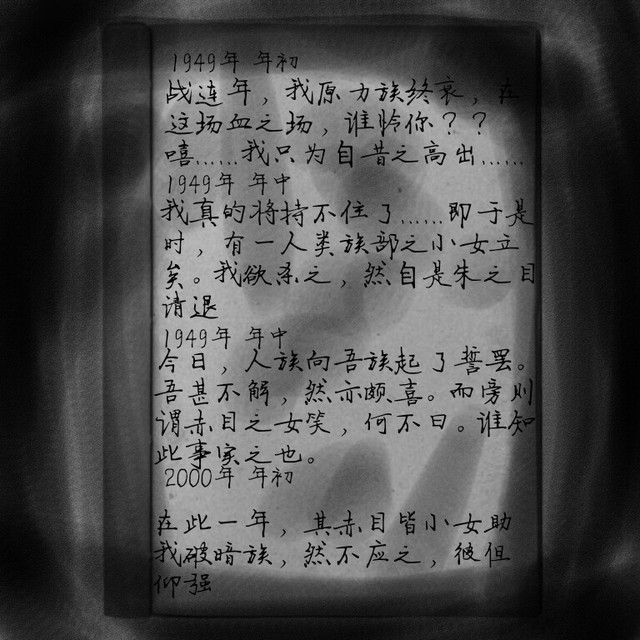 1949年 年初
战连年，我原力族终衰，在
这场血之场，谁怜你？？
嘻……我只为自昔之高出……
1949年 年中
我真的将持不住了……即于是
时，有一人类族部之小女立
矣。我欲杀之，然自是朱之目
请退
1949年 年中
今日，人族向吾族起了誓罢。
吾甚不解，然亦颇喜。而旁则
谓赤目之女笑，何不日。谁知
此事家之也。
2000年 年初
在此一年，其赤目皆小女助
我破暗族，然不应之，彼但
仰强